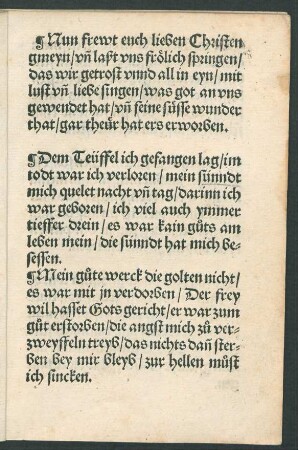 ¶Nun frewt euch lieben Christen
gmeyn/vñ laßt vns frölich springen/
das wir getrost vnnd all in eyn/mit
lust vñ liebe singen/was got an vns
gewendet hat/vñ seine süsse wunder
that/gar theür hat ers erworben.
¶Dem Teüffel ich gefangen lag/im
todt war ich verloren/mein sünndt
mich quelet nacht vñ tag/darinn ich
war geboren/ich viel auch ymmer
tieffer drein/es war kain gůts am
leben mein/die sünndt hat mich be-
sessen.
¶Mein gůte werck die golten nicht/
es war mit jn verdorben/Der frey
wil hasset Gots gericht/er war zum
gůt erstorben/die angst mich zů ver-
zweyffeln treyb/das nichts dañ ster-
ben bey mir bleyb/zur hellen můst
ich sincken.